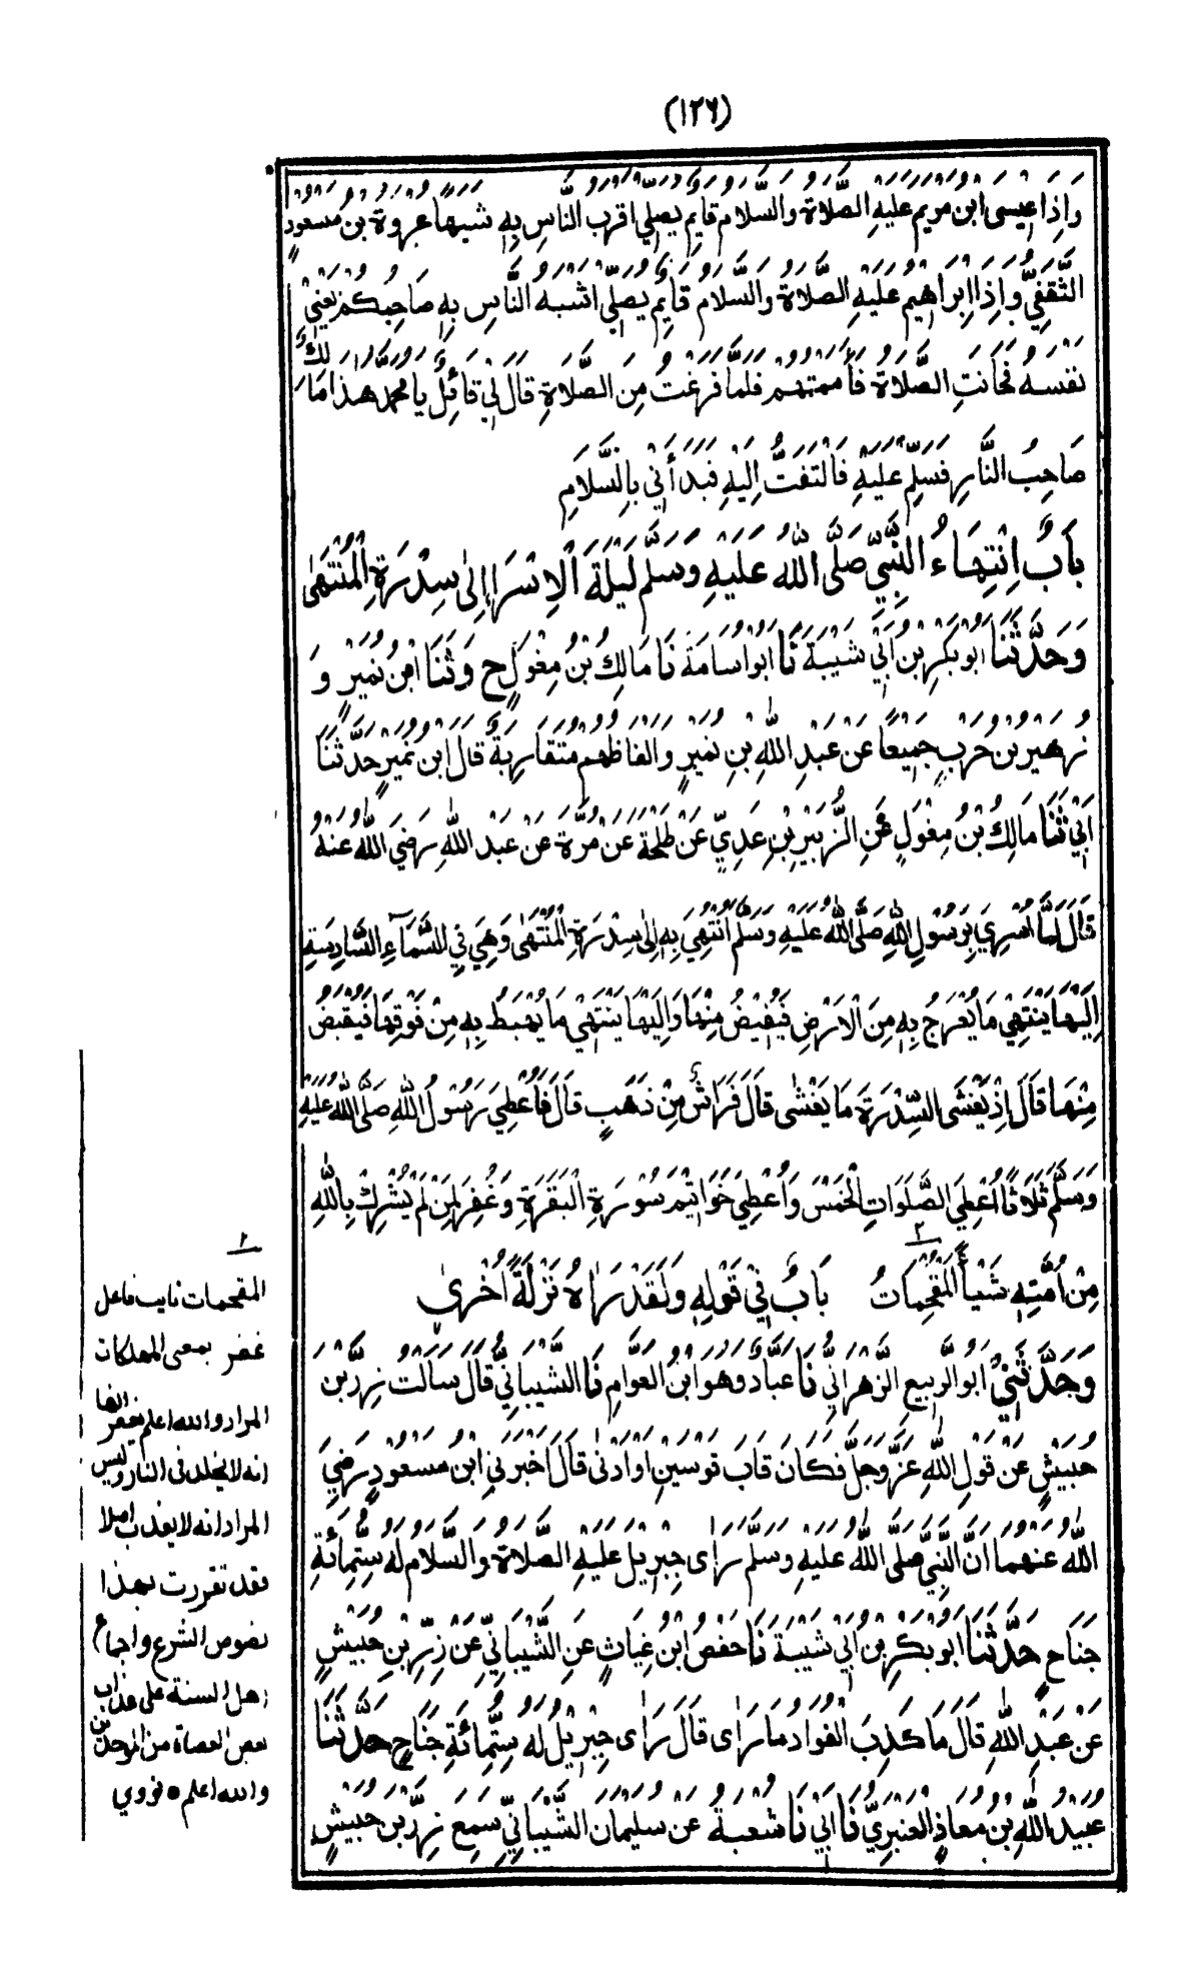 (١٢٦)
وَإِذَا عِيسَى ابْنُ مَرْيَمَ عَلَيْهِ الصَّلَاةُ وَالسَّلَامُ قَايِمٌ يُصَلِّي أَقْرَبُ النَّاسِ بِهِ شَبَهًا عُرْوَةُ بْنُ مَسْعُودٍ
الثَّقَفِيُّ وَإِذَا إِبْرَاهِيمُ عَلَيْهِ الصَّلَاةُ وَالسَّلَامُ قَايِمٌ يُصَلِّي أَشْبَهُ النَّاسِ بِهِ صَاحِبُكُمْ يَعْنِي
نَفْسَهُ فَحَانَتِ الصَّلَاةُ فَأَمَمْتُهُمْ فَلَمَّا فَرَغْتُ مِنَ الصَّلَاةِ قَالَ لِي قَائِلٌ يَا مُحَمَّدُ هَذَا مَالِكٌ
صَاحِبُ النَّارِ فَسَلِّمْ عَلَيْهِ فَالْتَفَتُّ إِلَيْهِ فَبَدَأَنِي بِالسَّلَامِ
بَابُ انْتِهَاءُ النَّبِيِّ صَلَّى اللهُ عَلَيْهِ وَسَلَّمَ لَيْلَةَ الْاِسْرَا إِلَى سِدْرَةِ الْمُنْتَهٰى
وَحَدَّثَنَا أَبُو بَكْرِ بْنُ أَبِي شَيْبَةَ نَا أَبُو أُسَامَةَ نَا مَالِكُ بْنُ مِغْوَلٍ ح وَثَنَا ابْنُ نُمَيْرٍ وَ
زُهَيْرُ بْنُ حَرْبٍ جَمِيعًا عَنْ عَبْدِ اللهِ بْنِ نُمَيْرٍ وَأَلْفَاظُهُمْ مُتَقَارِبَةٌ قَالَ ابْنُ نُمَيْرٍ حَدَّثَنَا
أَبِي ثَنَا مَالِكُ بْنُ مِغْوَلٍ عَنِ الزُّبَيْرِ بْنِ عَدِيٍّ عَنْ طَلْحَةَ عَنْ مُرَّةَ عَنْ عَبْدِ اللهِ رَضِيَ اللهُ عَنْهُ
قَالَ لَمَّا أُسْرِيَ بِرَسُولِ اللهِ صَلَّى اللهُ عَلَيْهِ وَسَلَّمَ انْتُهِيَ بِهِ إِلَى سِدْرَةِ الْمُنْتَهٰى وَهِيَ فِي السَّمَآءِ السَّادِسَةِ
إِلَيْهَا يَنْتَهِي مَا يُعْرَجُ بِهِ مِنَ الْأَرْضِ فَيُقْبَضُ مِنْهَا وَإِلَيْهَا يَنْتَهِي مَا يُهْبَطُ بِهِ مِنْ فَوْقِهَا فَيُقْبَضُ
مِنْهَا قَالَ إِذْ يَغْشَى السِّدْرَةَ مَا يَغْشٰى قَالَ فَرَاشٌ مِنْ ذَهَبٍ قَالَ فَأُعْطِيَ رَسُولُ اللهِ صَلَّى اللهُ عَلَيْهِ
وَسَلَّمَ ثَلَاثًا أُعْطِيَ الصَّلَوَاتِ الْخَمْسَ وَأُعْطِيَ خَوَاتِيْمَ سُورَةِ الْبَقَرَةِ وَغُفِرَ لِمَنْ لَمْ يُشْرِكْ بِاللهِ
مِنْ أُمَّتِهِ شَيْأً الْمُقْحِمَاتُ ٢ بَابٌ فِي قَوْلِهِ وَلَقَدْ رَاٰهُ نَزْلَةً أُخْرٰى
وَحَدَّثَنِي أَبُو الرَّبِيعِ الزَّهْرَانِيُّ نَا عَبَّادٌ وَهُوَ ابْنُ الْعَوَّامِ نَا الشَّيْبَانِيُّ قَالَ سَأَلْتُ زِرَّ بْنَ
حُبَيْشٍ عَنْ قَوْلِ اللهِ عَزَّ وَجَلَّ فَكَانَ قَابَ قَوْسَيْنِ أَوْ أَدْنٰى قَالَ أَخْبَرَنِي ابْنُ مَسْعُودٍ رَضِيَ
اللهُ عَنْهُمَا أَنَّ النَّبِيَّ صَلَّى اللهُ عَلَيْهِ وَسَلَّمَ رَاَى جِبْرِيلَ عَلَيْهِ الصَّلَاةُ وَالسَّلَامُ لَهُ سِتُّمِائَةِ
جَنَاحٍ حَدَّثَنَا أَبُو بَكْرِ بْنُ أَبِي شَيْبَةَ نَا حَفْصُ ابْنُ غِيَاثٍ عَنِ الشَّيْبَانِيِّ عَنْ زِرِّ بْنِ حُبَيْشٍ
عَنْ عَبْدِ اللهِ قَالَ مَا كَذَبَ الْفُوَادُ مَا رَاٰى قَالَ رَاٰى جِبْرِيلُ لَهُ سِتُّمِائَةِ جَنَاحٍ حَدَّثَنَا
عُبَيْدُ اللهِ بْنُ مُعَاذٍ الْعَنْبَرِيُّ نَا أَبِي نَا شُعْبَةُ عَنْ سُلَيْمَانَ الشَّيْبَانِيِّ سَمِعَ زِرَّ بْنَ حُبَيْشٍ
٢
المقحمات نايب فاعل
غفر بمعنى المهلكات
المراد والله اعلم بغفرانها
انه لا يخلد فى النار وليس
المراد انه لا يعذب اصلا
فقد تقررت بهذا
نصوص الشرع واجماع
اهل السنة على عذاب
بعض العصاة من الموحدين
والله اعلم ٥ نووي